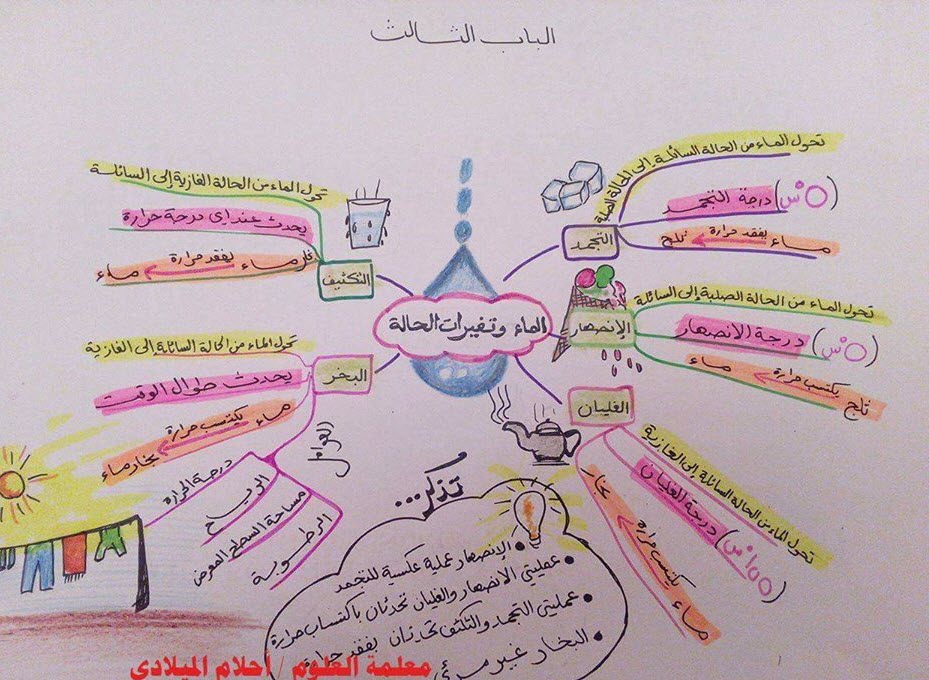 الباب الثالث
الماء وتغيرات الحالة
التجمد
تحول الماء من الحالة السائلة إلى الحالة الصلبة
(٥ْس) درجة التجمد
ماء يفقد حرارة ثلج
الإنصهار
تحول الماء من الحالة الصلبة إلى السائلة
(٥ْس) درجة الانصهار
ثلج يكتسب حرارة ماء
الغليان
تحول الماء من الحالة السائلة إلى الغازية
درجة الغليان (١٠٠ْس)
ماء يكتسب حرارة بخار
التكثيف
تحول الماء من الحالة الغازية إلى السائلة
يحدث عند اي درجة حرارة
بخار ماء يفقد حرارة ماء
البخر
تحول الماء من الحالة السائلة إلى الغازية
يحدث طوال الوقت
ماء يكتسب حرارة بخار ماء
العوامل
درجة الحرارة
الريح
مساحة السطح المعرض
الرطوبة
تذكر...
• الإنصهار عملية عكسية للتجمد
• عمليتي الانصهار والغليان تحدثان باكتساب حرارة
• عمليتي التجمد والتكثف تحدثان بفقد حرارة
• البخار غير مرئي
معلمة العلوم / أحلام الميلادي